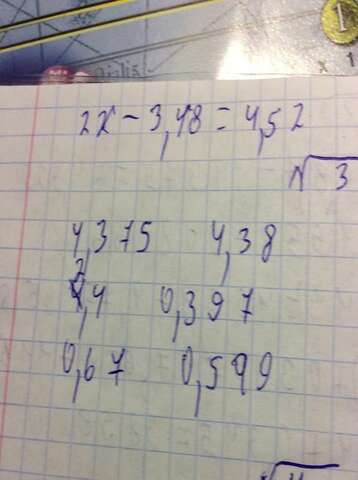 2x - 3,48 = 4,52
√ 3
4,375 4,38
2,4 0,397
0,67 0,599